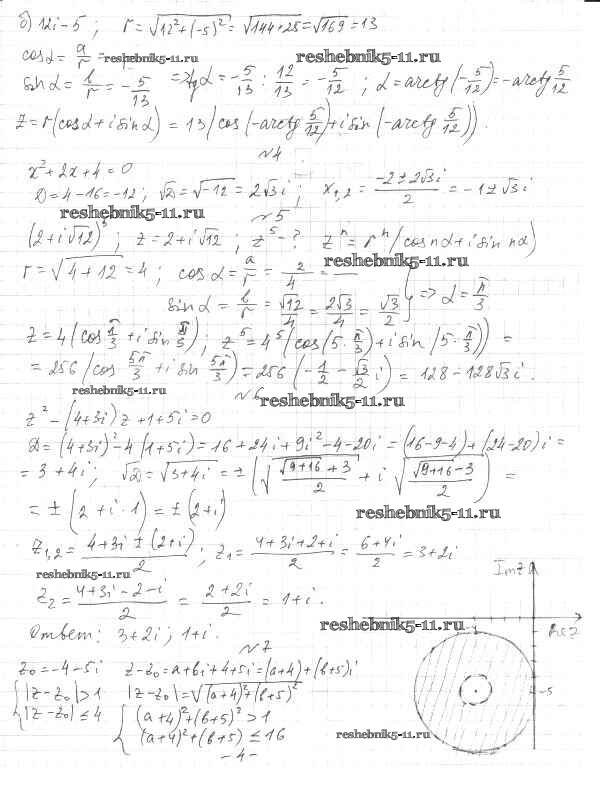 б) 12i-5 ; r=√(12²+(-5)²)=√(144+25)=√169=13
cosα = a/r =
reshebnik5-11.ru
reshebnik5-11.ru
sinα = b/r = -5/13 => tgα = -5/13 : 12/13 = -5/12 ; α=arctg(-5/12)=-arctg 5/12
z=r(cosα+i sinα) = 13(cos(-arctg 5/12)+i sin(-arctg 5/12)).
№4
x²+2x+4=0
D=4-16=-12; √D=√-12=2√3i ; x₁,₂ = (-2±2√3i)/2 = -1±√3i
reshebnik5-11.ru
№5
(2+i√12)⁵ ; z=2+i√12 ; z⁵-? zⁿ=rⁿ(cosnα+i sin nα)
reshebnik5-11.ru
r=√(4+12)=4; cosα = a/r = 2/4 =
sinα = b/r = √12/4 = 2√3/4 = √3/2 } => α=π/3
z=4(cos π/3 + i sin π/3); z⁵=4⁵(cos(5·π/3)+i sin(5·π/3)) =
=256(cos 5π/3 + i sin 5π/3)=256(-1/2 - √3/2 i) = 128-128√3i.
reshebnik5-11.ru
№6
reshebnik5-11.ru
z²-(4+3i)z+1+5i=0
D=(4+3i)²-4(1+5i)=16+24i+9i²-4-20i=(16-9-4)+(24-20)i=
=3+4i; √D=√(3+4i)=±(√((√(9+16)+3)/2)+i√((√(9+16)-3)/2)) =
=±(2+i·1)=±(2+i)
reshebnik5-11.ru
z₁,₂=(4+3i±(2+i))/2 ; z₁=(4+3i+2+i)/2=(6+4i)/2=3+2i
reshebnik5-11.ru
z₂=(4+3i-2-i)/2 = (2+2i)/2 = 1+i.
Ответ: 3+2i; 1+i.
reshebnik5-11.ru
№7
z₀=-4-5i z-z₀=a+bi+4+5i=(a+4)+(b+5)i
{ |z-z₀|>1 |z-z₀|=√((a+4)²+(b+5)²)
|z-z₀|≤4 { (a+4)²+(b+5)²>1
(a+4)²+(b+5)≤16
reshebnik5-11.ru
-4-
Imz
Rez
-5